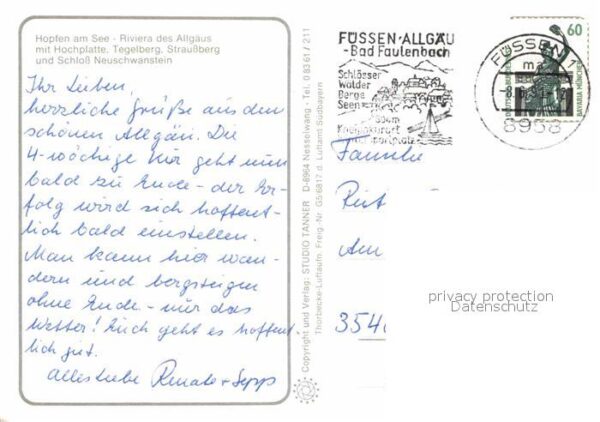 Hopfen am See - Riviera des Allgäus
mit Hochplatte, Tegelberg, Straußberg
und Schloß Neuschwanstein
Ihr Lieben,
herzliche Grüße aus dem
schönen Allgäu. Die
4-wöchige Kur geht nun
bald zu Ende - der Er-
folg wird sich hoffent-
lich bald einstellen.
Man kann hier wan-
dern und bergsteigen
ohne Ende - nur das
Wetter! Euch geht es hoffent-
lich gut.
Allesliebe Renate + Sepp
Copyright und Verlag: STUDIO TANNER D-8964 Nesselwang - Tel. 0 83 61 / 211
Thorbecke-Luftaufn. Freig. Nr. G5/6817 d. Luftamt Südbayern
FÜSSEN-ALLGÄU
-Bad Faulenbach
Schlösser
Wälder
Berge
Seen
Kneippkurort
FÜSSEN 1
ma
8958
60
DEUTSCHE BUNDESPOST
BAVARIA MÜNCHEN
Familie
Am
354
privacy protection
Datenschutz